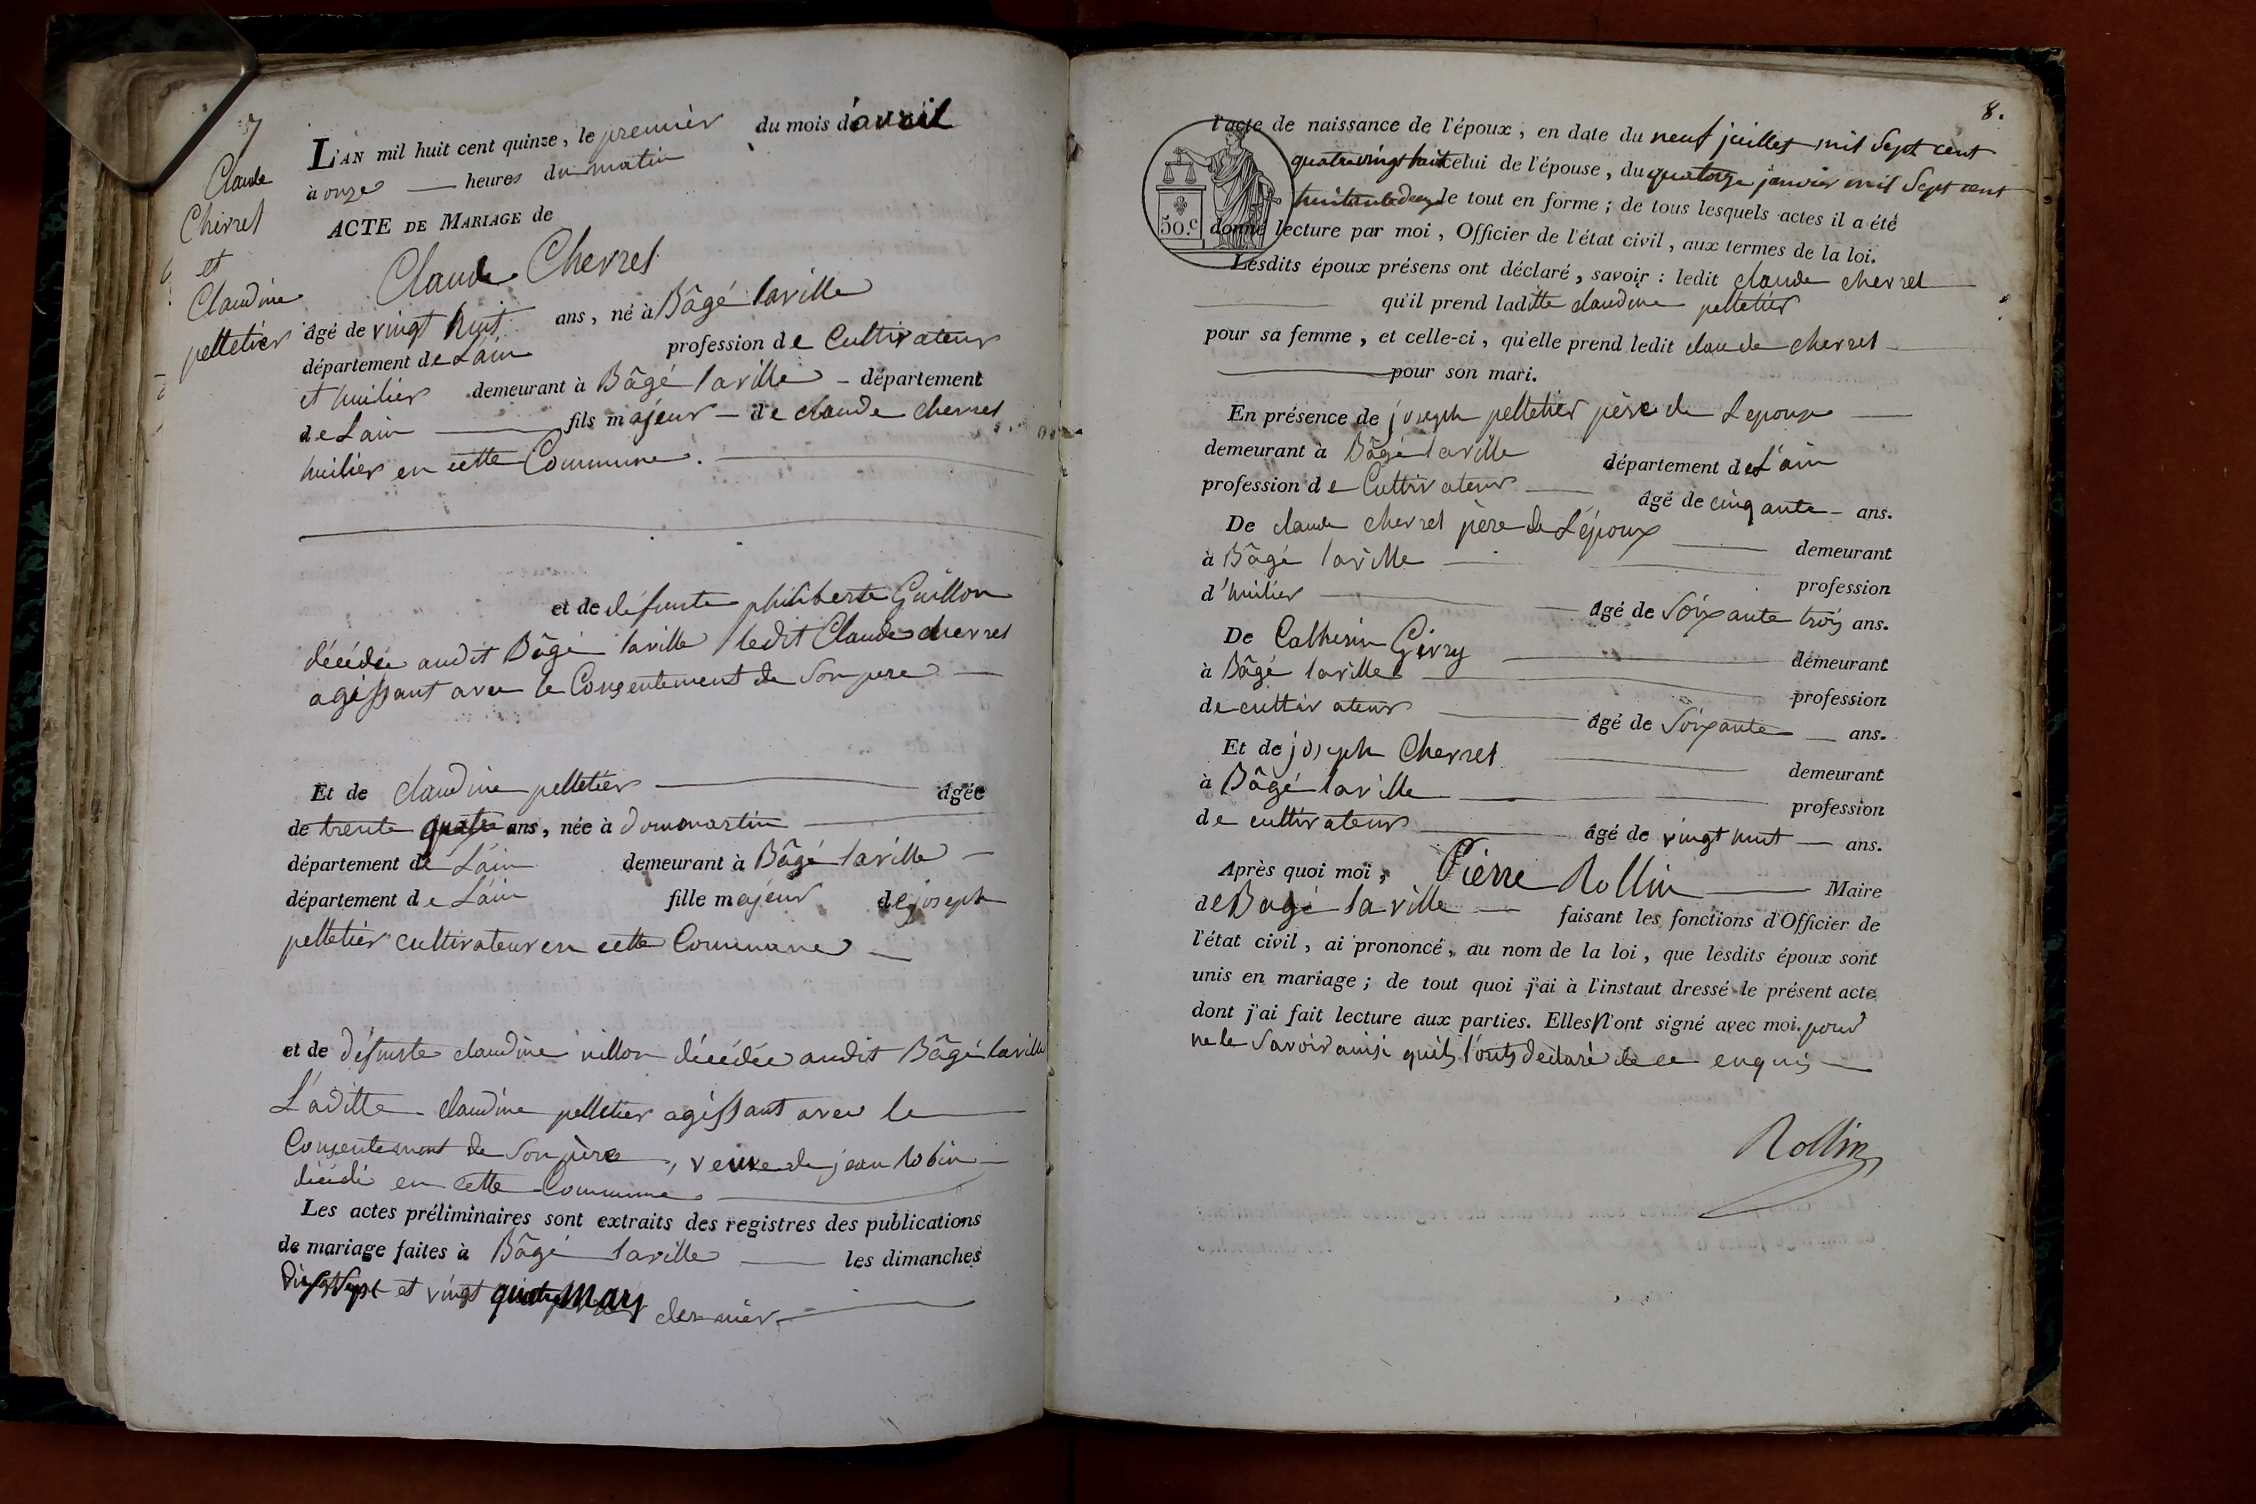 7
Claude
Chevrel
et
Claudine
pelletier
L'AN mil huit cent quinze, le premier du mois d'avril
à onze heures du matin
ACTE DE MARIAGE de
Claude Chevrel
âgé de vingt huit ans, né à Bâgé laville
département de L'ain profession de Cultivateur
et huilier demeurant à Bâgé laville département
de Lain fils majeur de claude chevrel
huilier en cette Commune.
et de défunte philiberte Guillon
décédée audit Bâgé laville ledit Claude chevrel
agissant avec le Consentement de Son pere
Et de claudine pelletier âgée
de trente quatre ans, née à dommartin
département de L'ain demeurant à Bâgé laville
département de L'ain fille majeur de joseph
pelletier cultivateur en cette Commune
et de défunte claudine villon décédée audit Bâgé laville
L'aditte claudine pelletier agissant avec le
Consentement de Son père, veuve de jean robin
décédé en cette Commune.
Les actes préliminaires sont extraits des registres des publications
de mariage faites à Bâgé laville les dimanches
dix Sept et vingt quatre Mars dernier
8.
50.c
l'acte de naissance de l'époux, en date du neuf juillet mil Sept cent
quatrevingt huit celui de l'épouse, du quatorze janvier mil Sept cent
le tout en forme; de tous lesquels actes il a été
donné lecture par moi, Officier de l'état civil, aux termes de la loi.
Lesdits époux présens ont déclaré, savoir: ledit claude chevrel
qu'il prend laditte claudine pelletier
pour sa femme, et celle-ci, qu'elle prend ledit claude chevrel
pour son mari.
En présence de joseph pelletier père de Lepouse
demeurant à Bâgé laville département de L'ain
profession de Cultivateur âgé de cinqante ans.
De claude chevrel père de L'époux demeurant
à Bâgé laville profession
d'huilier âgé de Soixante trois ans.
De Catherin Givry demeurant
à Bâgé laville profession
de cultivateur âgé de Soixante ans.
Et de joseph Chevrel demeurant
à Bâgé laville profession
de cultivateur âgé de vingt huit ans.
Après quoi moi, Pierre Rollin Maire
de Bagé laville faisant les fonctions d'Officier de
l'état civil, ai prononcé, au nom de la loi, que lesdits époux sont
unis en mariage; de tout quoi j'ai à l'instaut dressé le présent acte
dont j'ai fait lecture aux parties. Elles N'ont signé avec moi. pour
ne le Savoir ainsi quils l'onts declaré de ce enquis
Rollin